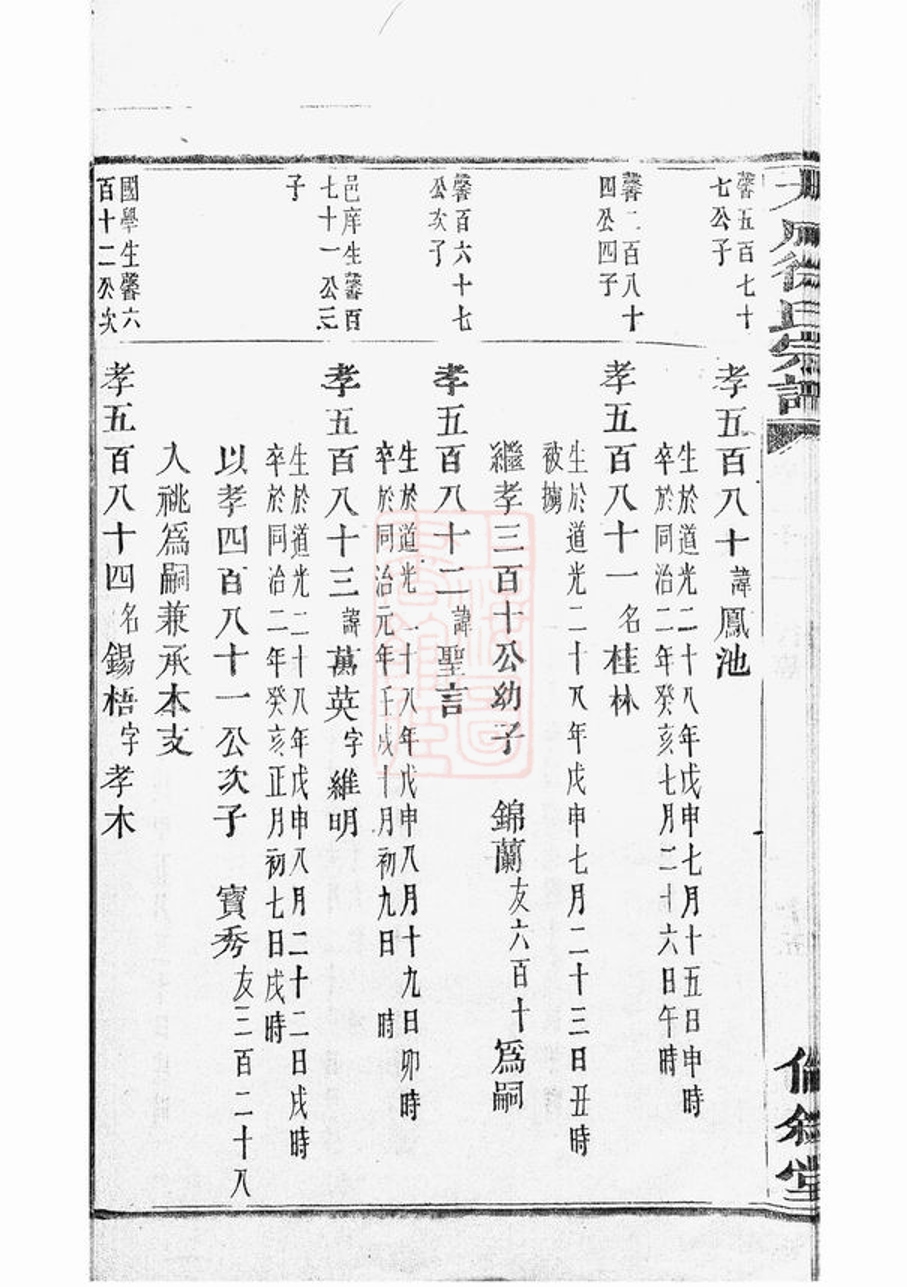 徐氏宗譜
倫敘堂
馨五百七十
七公子
孝五百八十諱鳳池
生於道光二十八年戊申七月十五日申時
卒於同治二年癸亥七月二十六日午時
馨二百八十
四公四子
孝五百八十一名桂林
生於道光二十八年戊申七月二十三日丑時
被擄
繼孝三百十公幼子 錦蘭友六百十為嗣
馨百六十七
公次子
孝五百八十二諱聖言
生於道光二十八年戊申八月十九日卯時
卒於同治元年壬戌十月初九日 時
邑庠生馨百
七十一公三
子
孝五百八十三諱萬英字維明
生於道光二十八年戊申八月二十二日戌時
卒於同治二年癸亥正月初七日戌時
以孝四百八十一公次子 寶秀友三百二十八
入祧為嗣兼承本支
國學生馨六
百十二公次
孝五百八十四名錫梧字孝木